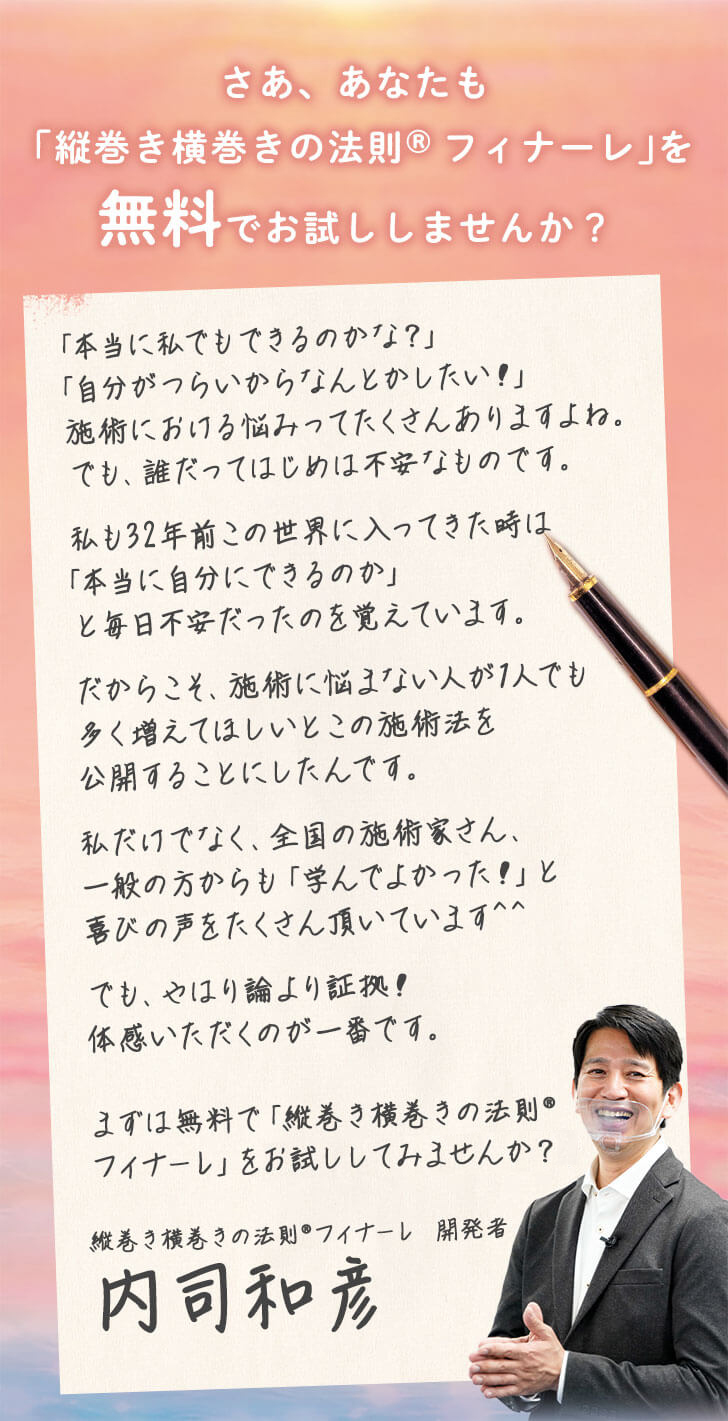 さあ、あなたも
「縦巻き横巻きの法則® フィナーレ」を
無料でお試ししませんか？
「本当に私でもできるのかな？」
「自分がつらいからなんとかしたい！」
施術における悩みってたくさんありますよね。
でも、誰だってはじめは不安なものです。
私も32年前この世界に入ってきた時は
「本当に自分にできるのか」
と毎日不安だったのを覚えています。
だからこそ、施術に悩まない人が1人でも
多く増えてほしいとこの施術法を
公開することにしたんです。
私だけでなく、全国の施術家さん、
一般の方からも「学んでよかった！」と
喜びの声をたくさん頂いています^^
でも、やはり論より証拠！
体感いただくのが一番です。
まずは無料で「縦巻き横巻きの法則®
フィナーレ」をお試ししてみませんか？
縦巻き横巻きの法則®フィナーレ 開発者
内司和彦